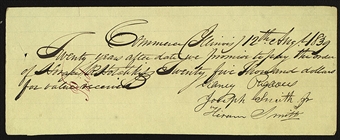 Commerce Illinois 12th Aug't 1839
Twenty years after date we promise to pay the order
of Horace R Hotchkiss Twenty five Hundred dollars
for value received
Sidney Rigdon
Joseph Smith Jr
Hiram Smith